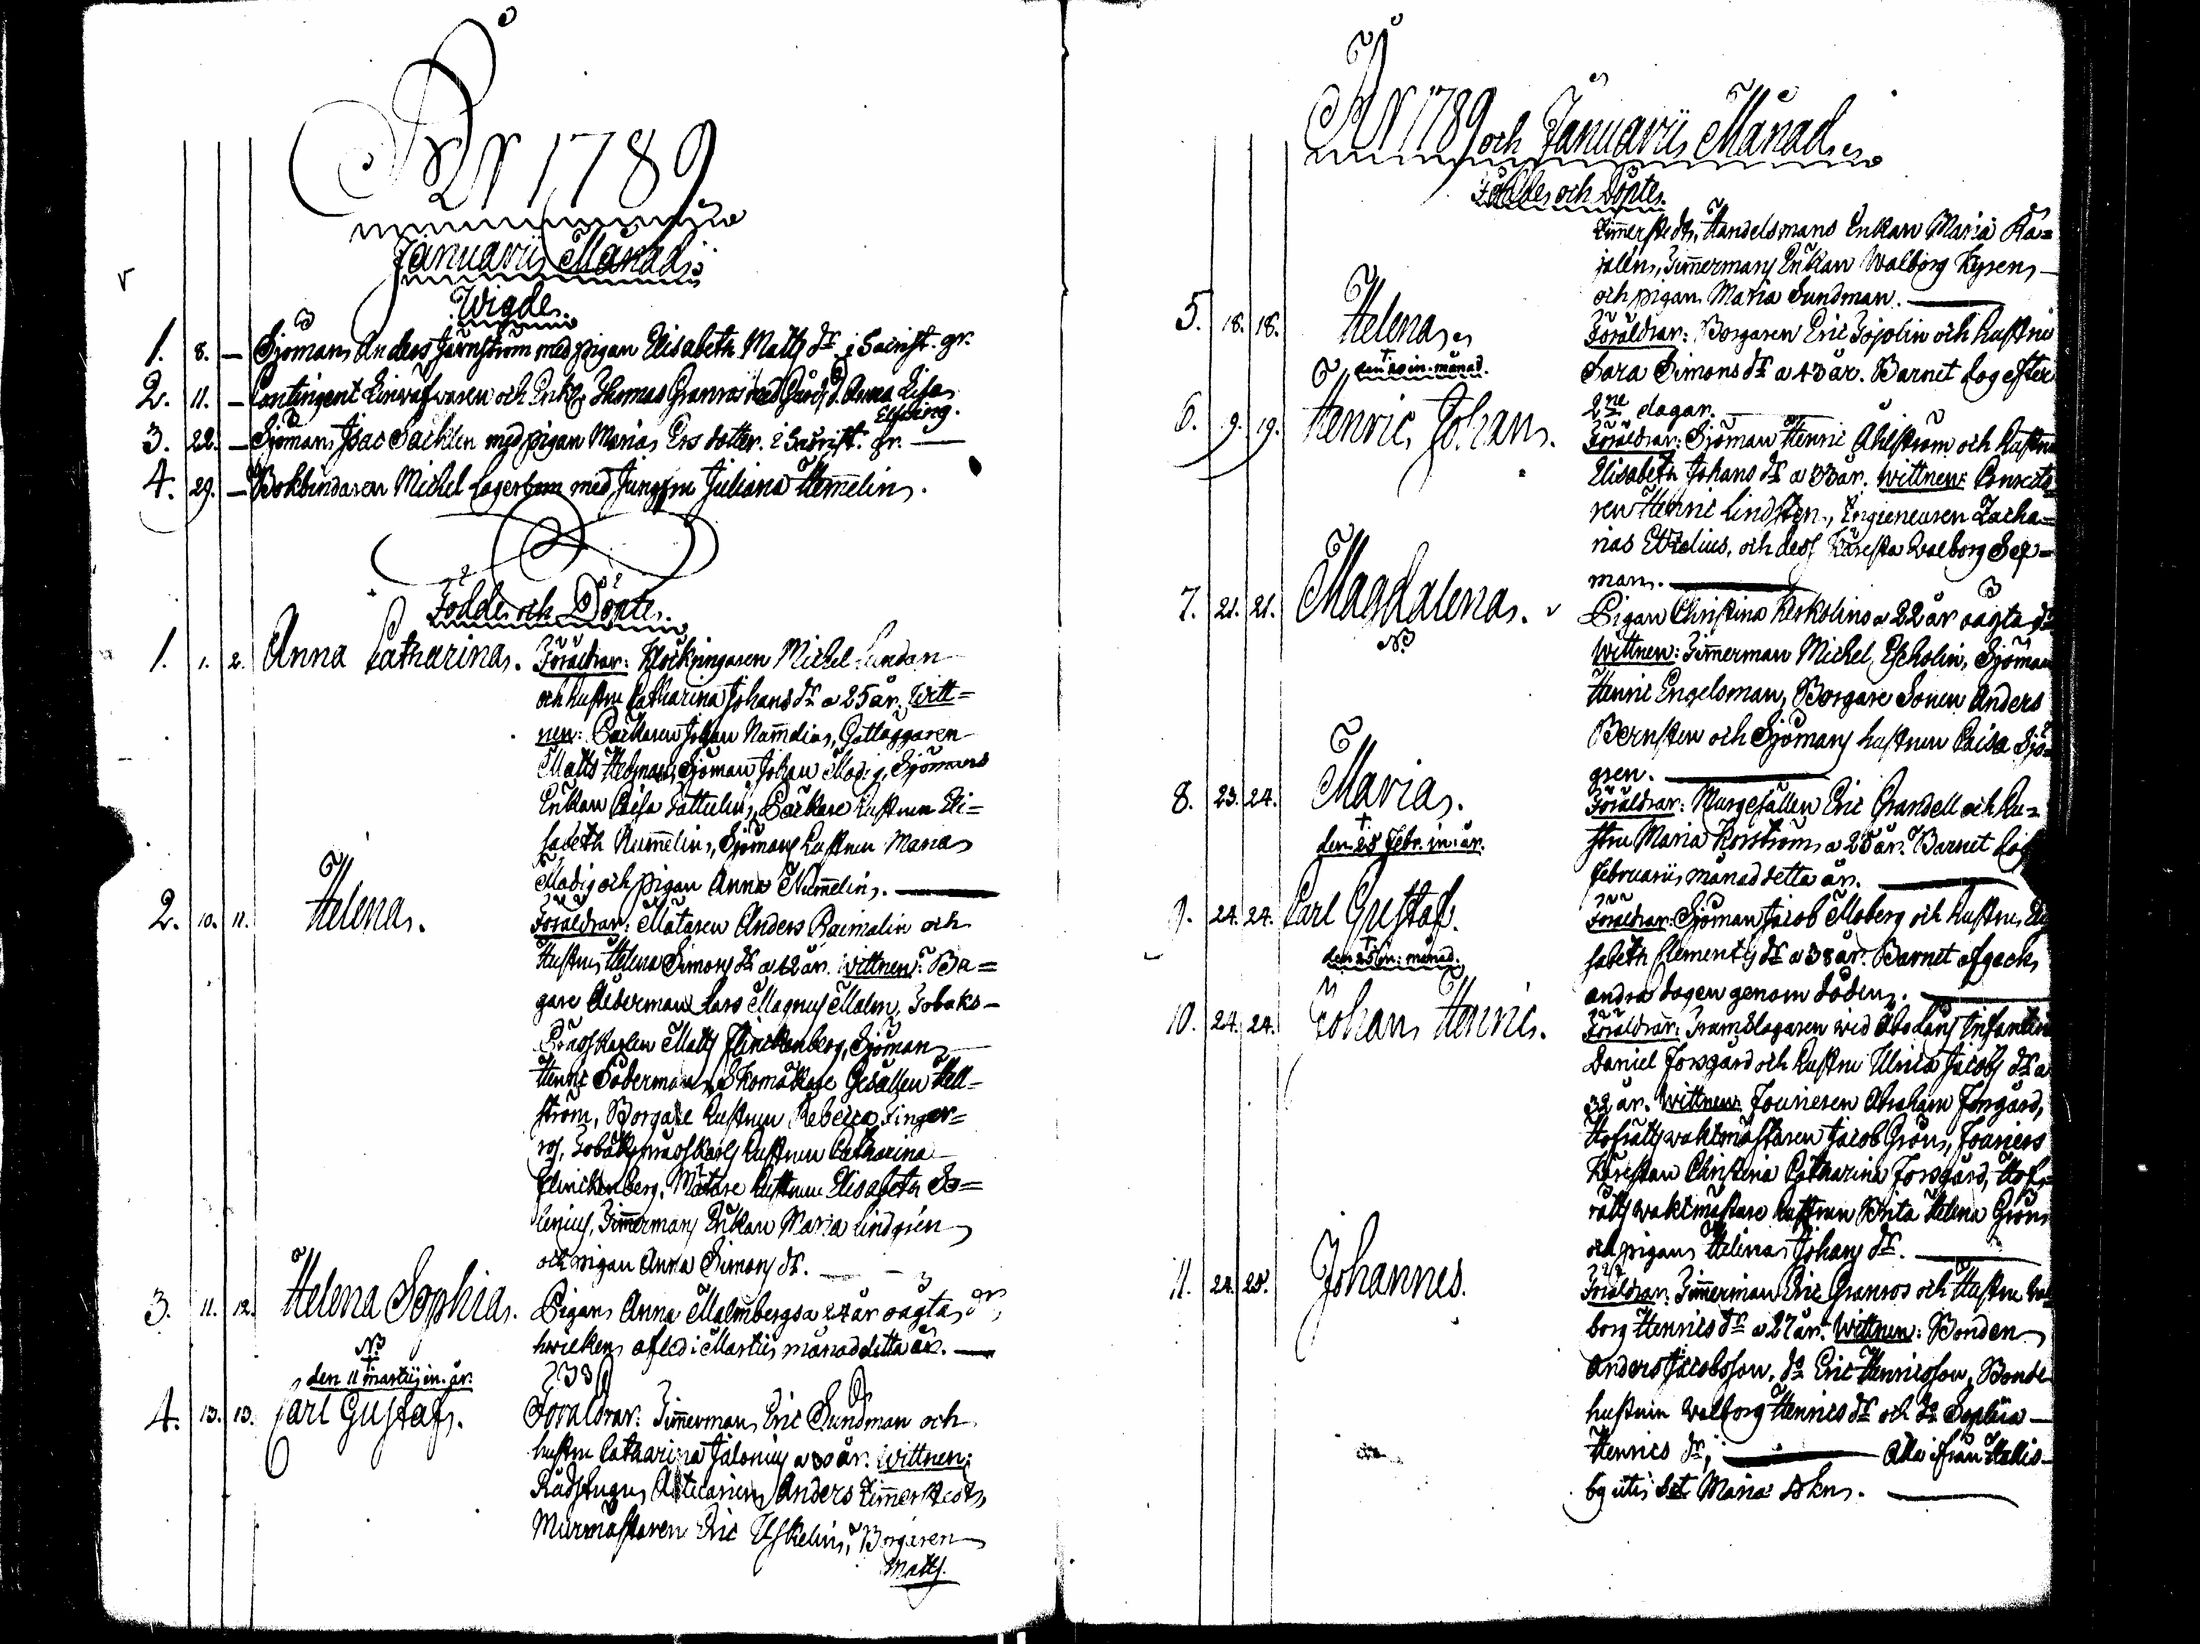 År 1789
Januarii Månad.
Wigde.
1. 8. — Sjöman Anders Järnström med pigan Elisabeth Matts dr. i Skrift. gr.
2. 11. — Contingent Linwäfwaren och Enkl. Thomas Granroos med Gårds d. Anna Lisa
Elfving.
3. 22. — Sjöman Isac Sacklen med pigan Maria Ers dotter. i Skrift. gr. —
4. 29. — Bokbindaren Michel Lagerbom med Jungfru Juliana Hemelin.
Födde och Döpte.
1. 1. 2. Anna Catharina. Föräldrar: Klockringaren Michel Lundan
och hustru Catharina Johans dr. a 25 år. Witt=
nen: Packaren Johan Numelin,
Matts Hedman, Sjöman Johan Modig, Sjömans
Enkan Caisa Packare hustrun Eli=
sabeth Numelin, Sjömans hustrun Maria
Modig och pigan Anna Numelin. —
2. 10. 11. Helena. Föräldrar: Mätaren Anders Raimalin och
Hustru Helena Simons dr. a 42 år. Wittnen: Ba=
gare Ålderman Lars Magnus Malm, Tobaks=
Matts Flinckenberg, Sjöman
Henric Söderman, Skomakare Gesällen Hell=
ström, Borgare hustrun Rebecca Finger=
ros, hustrun Catharina
Flinckenberg, Mätare hustrun Elisabeth So=
lenius, Timmermans Enkan Maria Lindgrén
och pigan Anna Simons dr. —
3. 11. 12. Helena Sophia. Pigan Anna Malmbergs a 24 år oägta dr.
hwilken afled i Martii månad detta år. —
NB
den 11 Martii in. år.
4. 13. 13. Carl Gustaf. Föräldrar: Timmerman Eric Sundman och
hustru Catharina Idlonius a 30 år. Wittnen:
Rådstugu Anders Zimmerstedt,
Murmästaren Eric Uskelin, Borgaren
Matts
År 1789 och Januarii Månad.
Födde och Döpte.
Zimmerstedt, Handelsmans Enkan Maria Ka=
jalén, Timmermans Enkan Walborg Kyrén,
och pigan Maria Sundman. —
5. 18. 18. Helena. Föräldrar: Borgaren Eric Tojolin och hustru
den 20 in. månad. Sara Simons dr. a 43 år. Barnet dog efter
2ne dagar. —
6. 9. 19. Henric Johan. Föräldrar: Sjöman Henric Åhlström och hustru
Elisabeth Johans dr. a 33 år. Wittnen: Conrecto=
ren Henric Lindsten, Engieneuren Zacha=
rias och dess Käresta Walborg
man. —
7. 21. 21. Magdalena. Pigan Christina Kerkolins a 22 år oägta dr.
NB Wittnen: Timmerman Michel Eskolin, Sjöman
Henric Engelsman, Borgare Sonen Anders
Bernsten och Sjömans hustrun Caisa Sjö=
gren. —
8. 23. 24. Maria. Föräldrar: Murgesällen Eric Grandell och hu=
stru Maria Korström a 25 år. Barnet dog
den 28 Febr. in. år. Februarii månad detta år. —
9. 24. 24. Carl Gustaf. Föräldrar: Sjöman Jacob Moberg och hustru Eli
sabeth Clements dr. a 38 år. Barnet afgeck
den 25 in. månad. andra dagen genom döden. —
10. 24. 24. Johan Henric. Föräldrar: Trumslagaren wid Åbo läns Infanterie
Daniel Forsgård och hustru Ulrica Jacobs dr. a
32 år. Wittnen: Fourieren Abraham Forsgård,
Hofrätts waktmästaren Jacob Grön, Fouriers
Kärestan Christina Catharina Forsgård, Hof=
rätts waktmästare hustrun Brita Helena Grön
och pigan Helena Johans dr. —
11. 24. 25. Johannes. Föräldrar: Timmerman Eric Granroos och Hustru Wal
borg Henrics dr. a 27 år. Wittnen: Bonden
Anders Jacobsson, do. Eric Henricsson, Bonde
hustrun Walborg Henrics dr. och do. Sophia
Henrics dr., — Alla ifrån Hallis=
by uti Sct Mariæ Skn. —